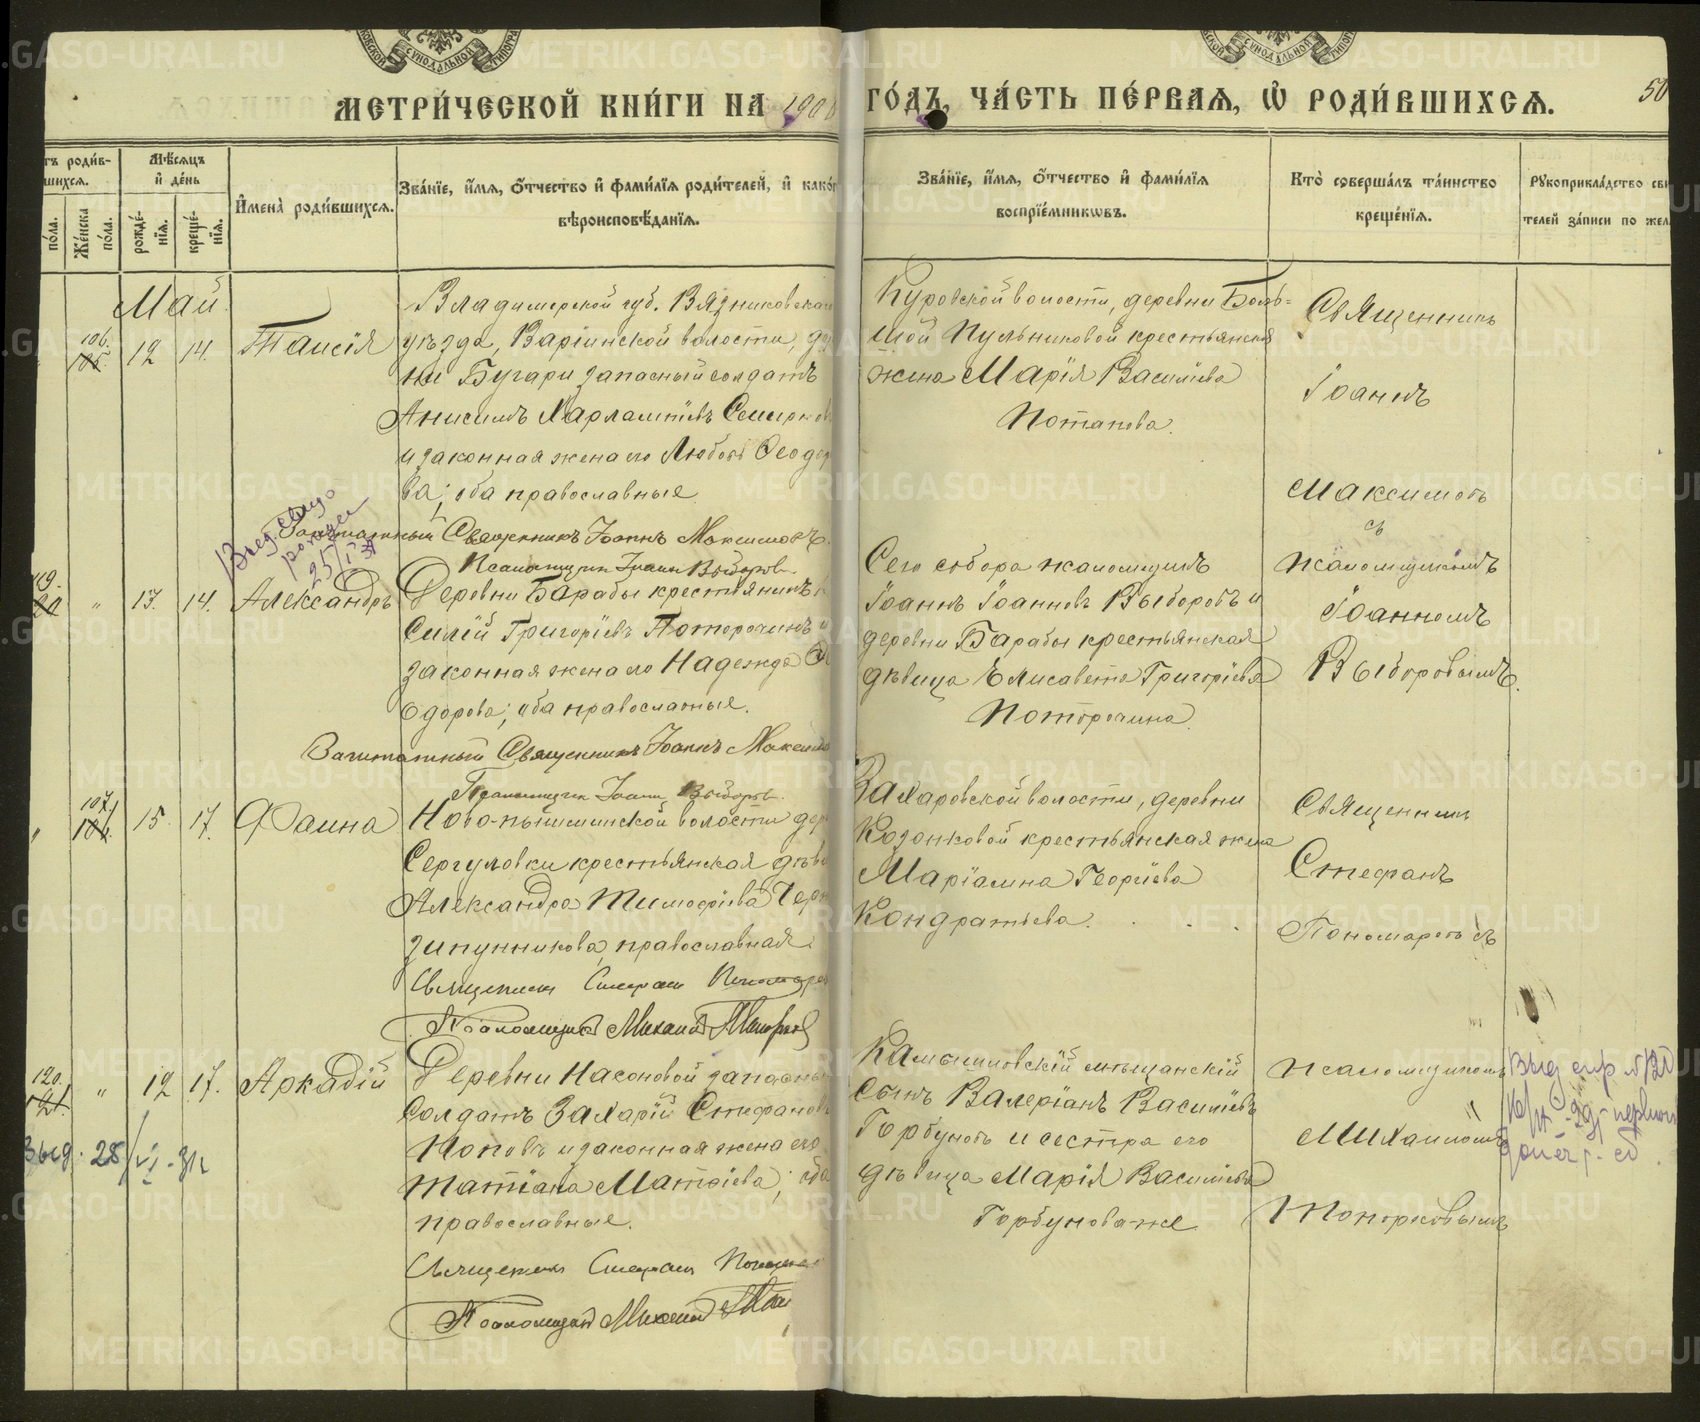 МЕТРИ́ЧЕСКОЙ КНИ́ГИ НА 1908 ГО́ДЪ, ЧА́СТЬ ПЕ́РВАѦ, Ѡ҆ РОДИ́ВШИХСѦ.
50
роди́в-
шихсѧ.
по́ла.
Же́нска по́ла.
Мѣ́сѧцъ
и҆ де́нь
рожде́-
нїѧ.
креще́-
нїѧ.
И҆мена̀ роди́вшихсѧ.
Зва́нїе, и҆́мѧ, ѻ҆́тчество и҆ фами́лїѧ роди́телей, и҆ како́г
вѣроисповѣ́данїѧ.
Зва́нїе, и҆́мѧ, ѻ҆́тчество и҆ фами́лїѧ
воспрїе́мникѡвъ.
Кто̀ соверша́лъ та́инство
креще́нїѧ.
Рꙋкоприкла́дство сви
телей за́писи по жел
Май.
106.
105.
12
14.
Таисія
Владимірской губ. Вязниковска
уѣзда, Варіинской волости, де
ни Бугари запасный солдатъ
Анисимъ Харлампіевъ Смирнов
и законная жена его Любовь Ѳеодор
ва; оба православные
Заштатный Священникъ Іоаннъ Максимовъ.
Псаломщикъ Іоаннъ Выборовъ
Куровской волости, деревни Боль=
шой Пульниковой крестьянская
жена Марія Васильева
Потапова.
Священникъ
Іоаннъ
Максимовъ
съ
псаломщикомъ
Іоанномъ
Выборовымъ.
"
13.
14.
Александръ
Деревни Барабы крестьянинъ
Силій Григоріевъ Поторочинъ и
законная жена его Надежда Ѳе
одорова; оба православные.
Заштатный Священникъ Іоаннъ Максимо
Псаломщикъ Іоаннъ Выборовъ.
Сего собора псаломщикъ
Іоаннъ Іоанновъ Выборовъ и
деревни Барабы крестьянская
дѣвица Елисавета Григоріева
Поторочина
107.
106.
15.
17.
Фаина
Ново-пышминской волости дер
Сергуловки крестьянская дѣви
Александра Тимофіева Черн
зипунникова, православная.
Священникъ Стефанъ Пономарев
Псаломщикъ Михаилъ Топорковъ
Захаровской волости, деревни
Козонковой крестьянская жена
Маріамна Георгіева
Кондратьева.
Священникъ
Стефанъ
Пономаревъ съ
120.
121.
"
12
17.
Аркадій
Деревни Насоновой запасный
солдатъ Захарій Стефановъ
Поповъ и законная жена его
Татіана Матвіева; оба
православные.
Священникъ Стефанъ Пономарев
Псаломщикъ Михаилъ
Камышловскій мѣщанскій
сынъ Валеріанъ Васильевъ
Горбуновъ и сестра его
дѣвица Марія Васильева
Горбунова же
псаломщикомъ
Михаиломъ
Топорковымъ
METRIKI.GASO-URAL.RU